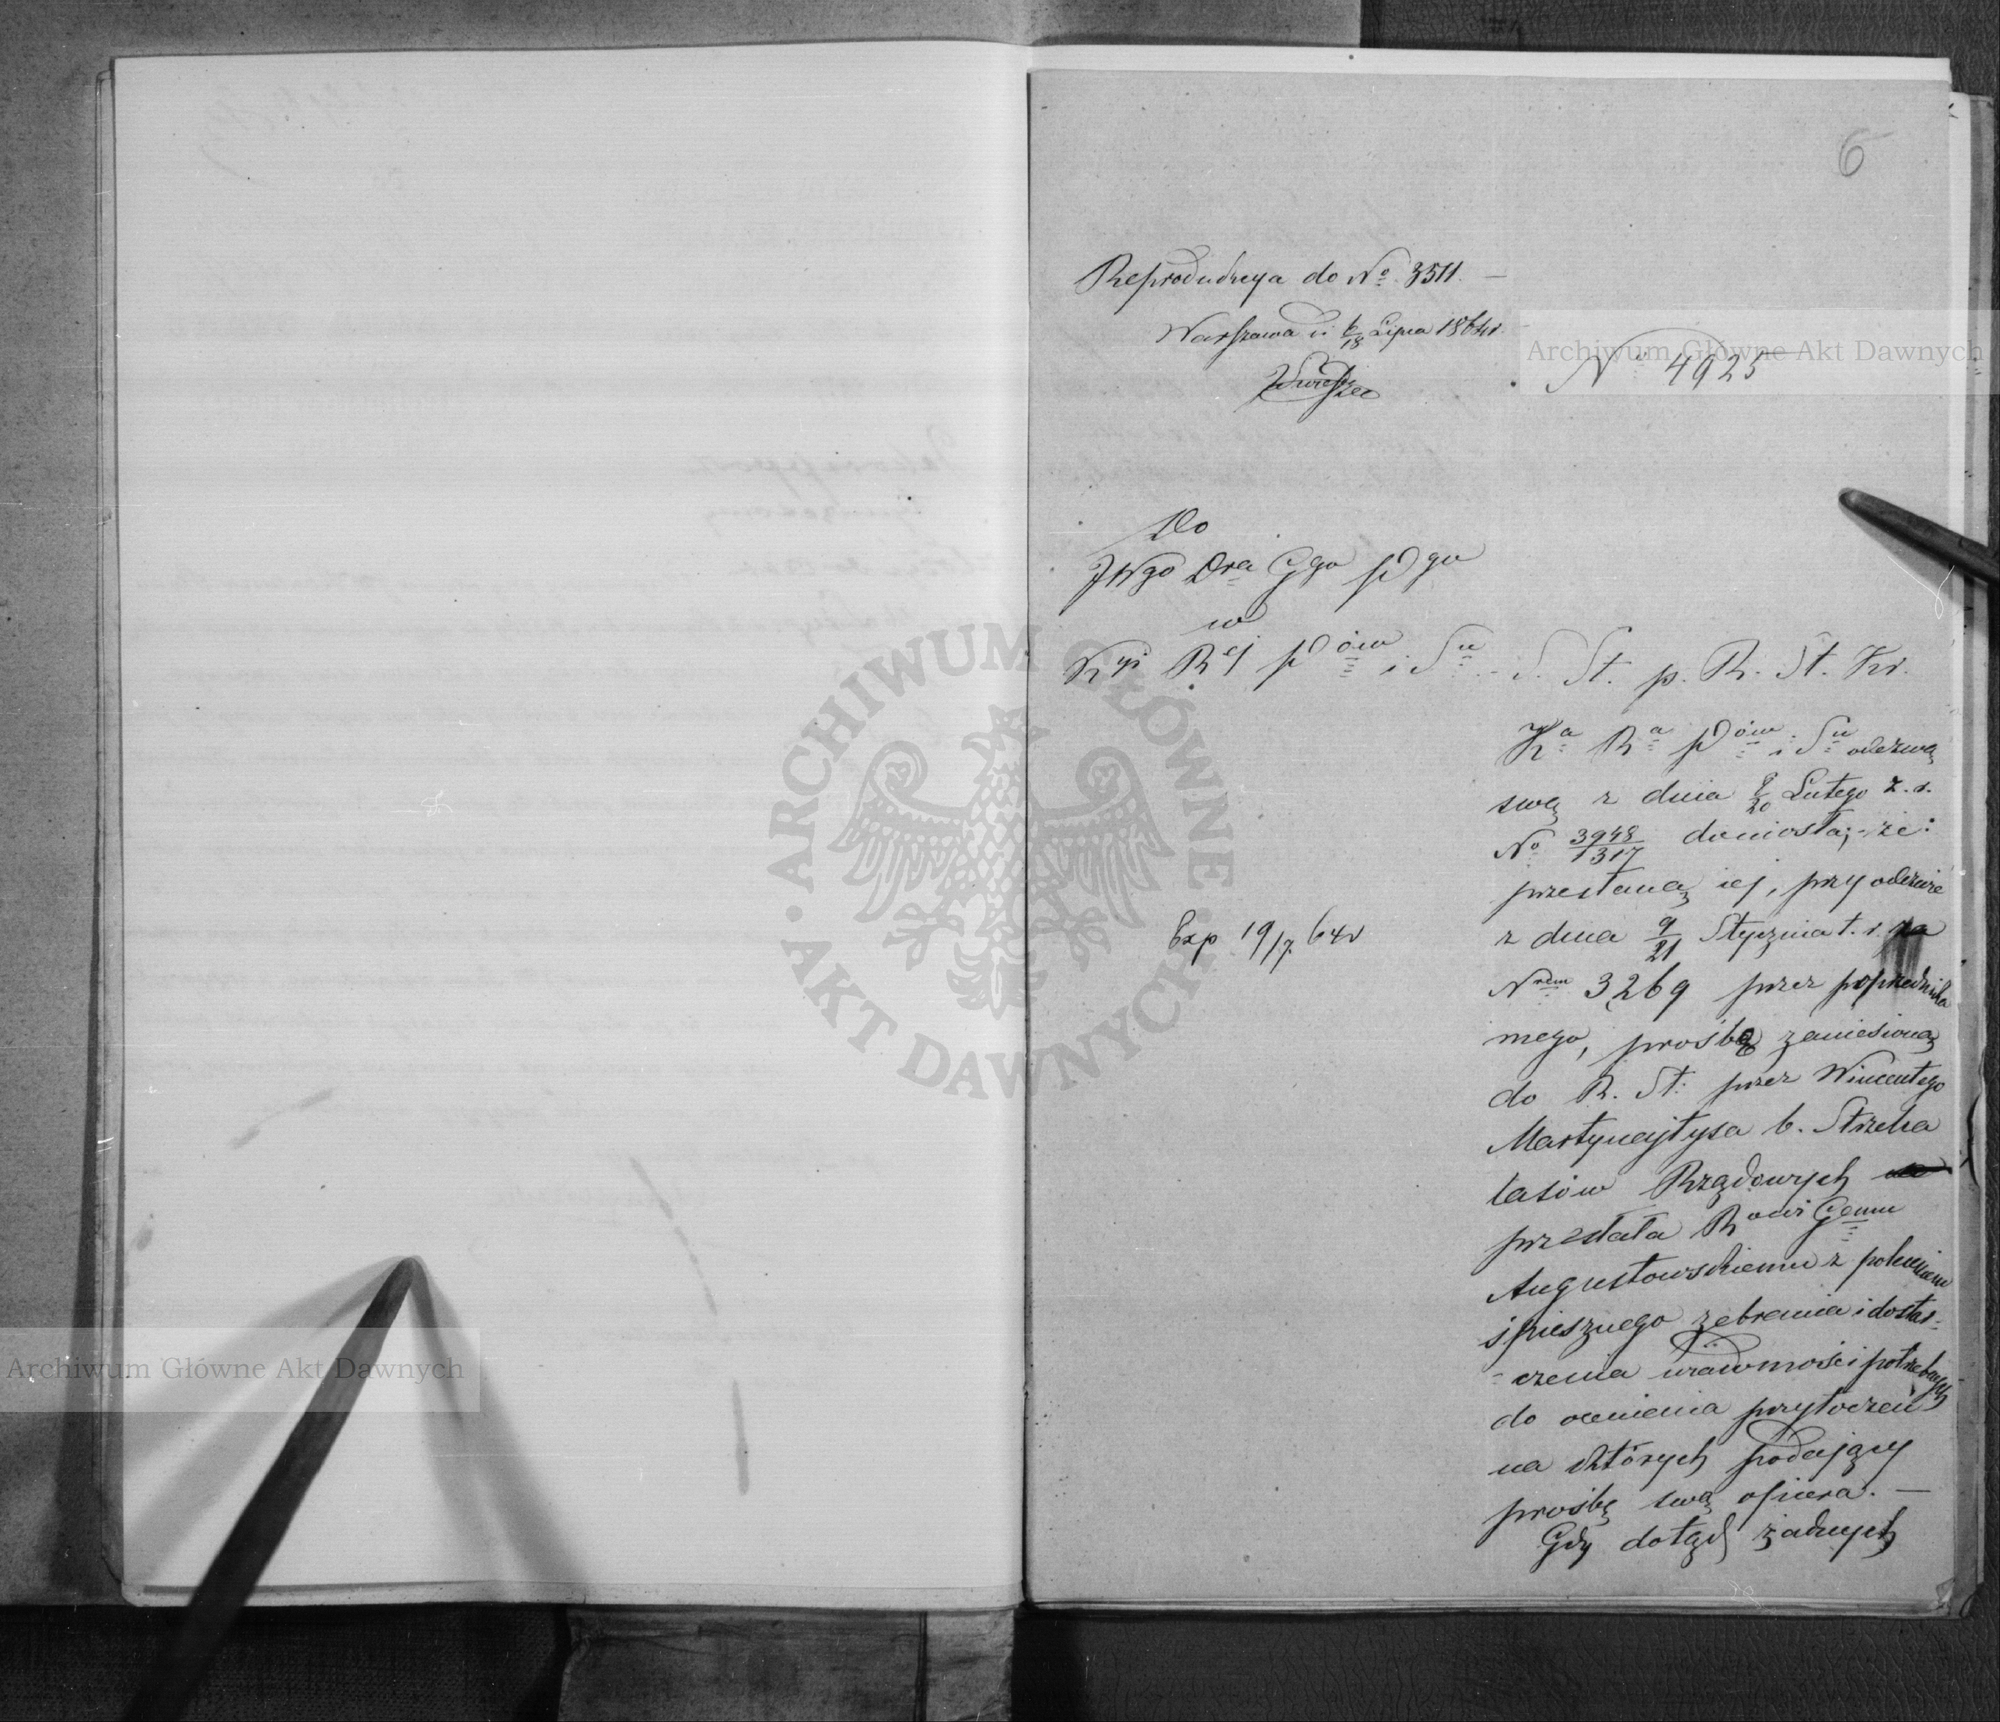 6
Reprodukcya do No 3511. —
Warszawa d. 6/18 Lipca 1864 r.
No 4925
Do
JWgo Dra Ggo Pgo
w
Kyi Rej Pów i Su S. St. p. R. St. Kr.
Ka Ra Pów i Su odezwą
swą z dnia 8/20 Lutego z. r.
No 3948/1317 doniosła, że:
przesłaną jej, przy odezwie
z dnia 9/21 Stycznia t. r. za
Nrem 3269 przez poprzednika
mego, prośbę zaniesioną
do R. St. przez Wincentego
Martynajtysa b. Strzelca
lasów Rządowych
przesłała Rowi Gemu
Augustowskiemu z poleceniem
śpiesznego zebrania i dostar-
-czenia wiadomości potrzebnych
do ocenienia przytoczeń
na których podający
prośbę swą opiera. —
Gdy dotąd żadnych
Exp 19/7 64 r
Archiwum Główne Akt Dawnych
Archiwum Główne Akt Dawnych
ARCHIWUM GŁÓWNE AKT DAWNYCH